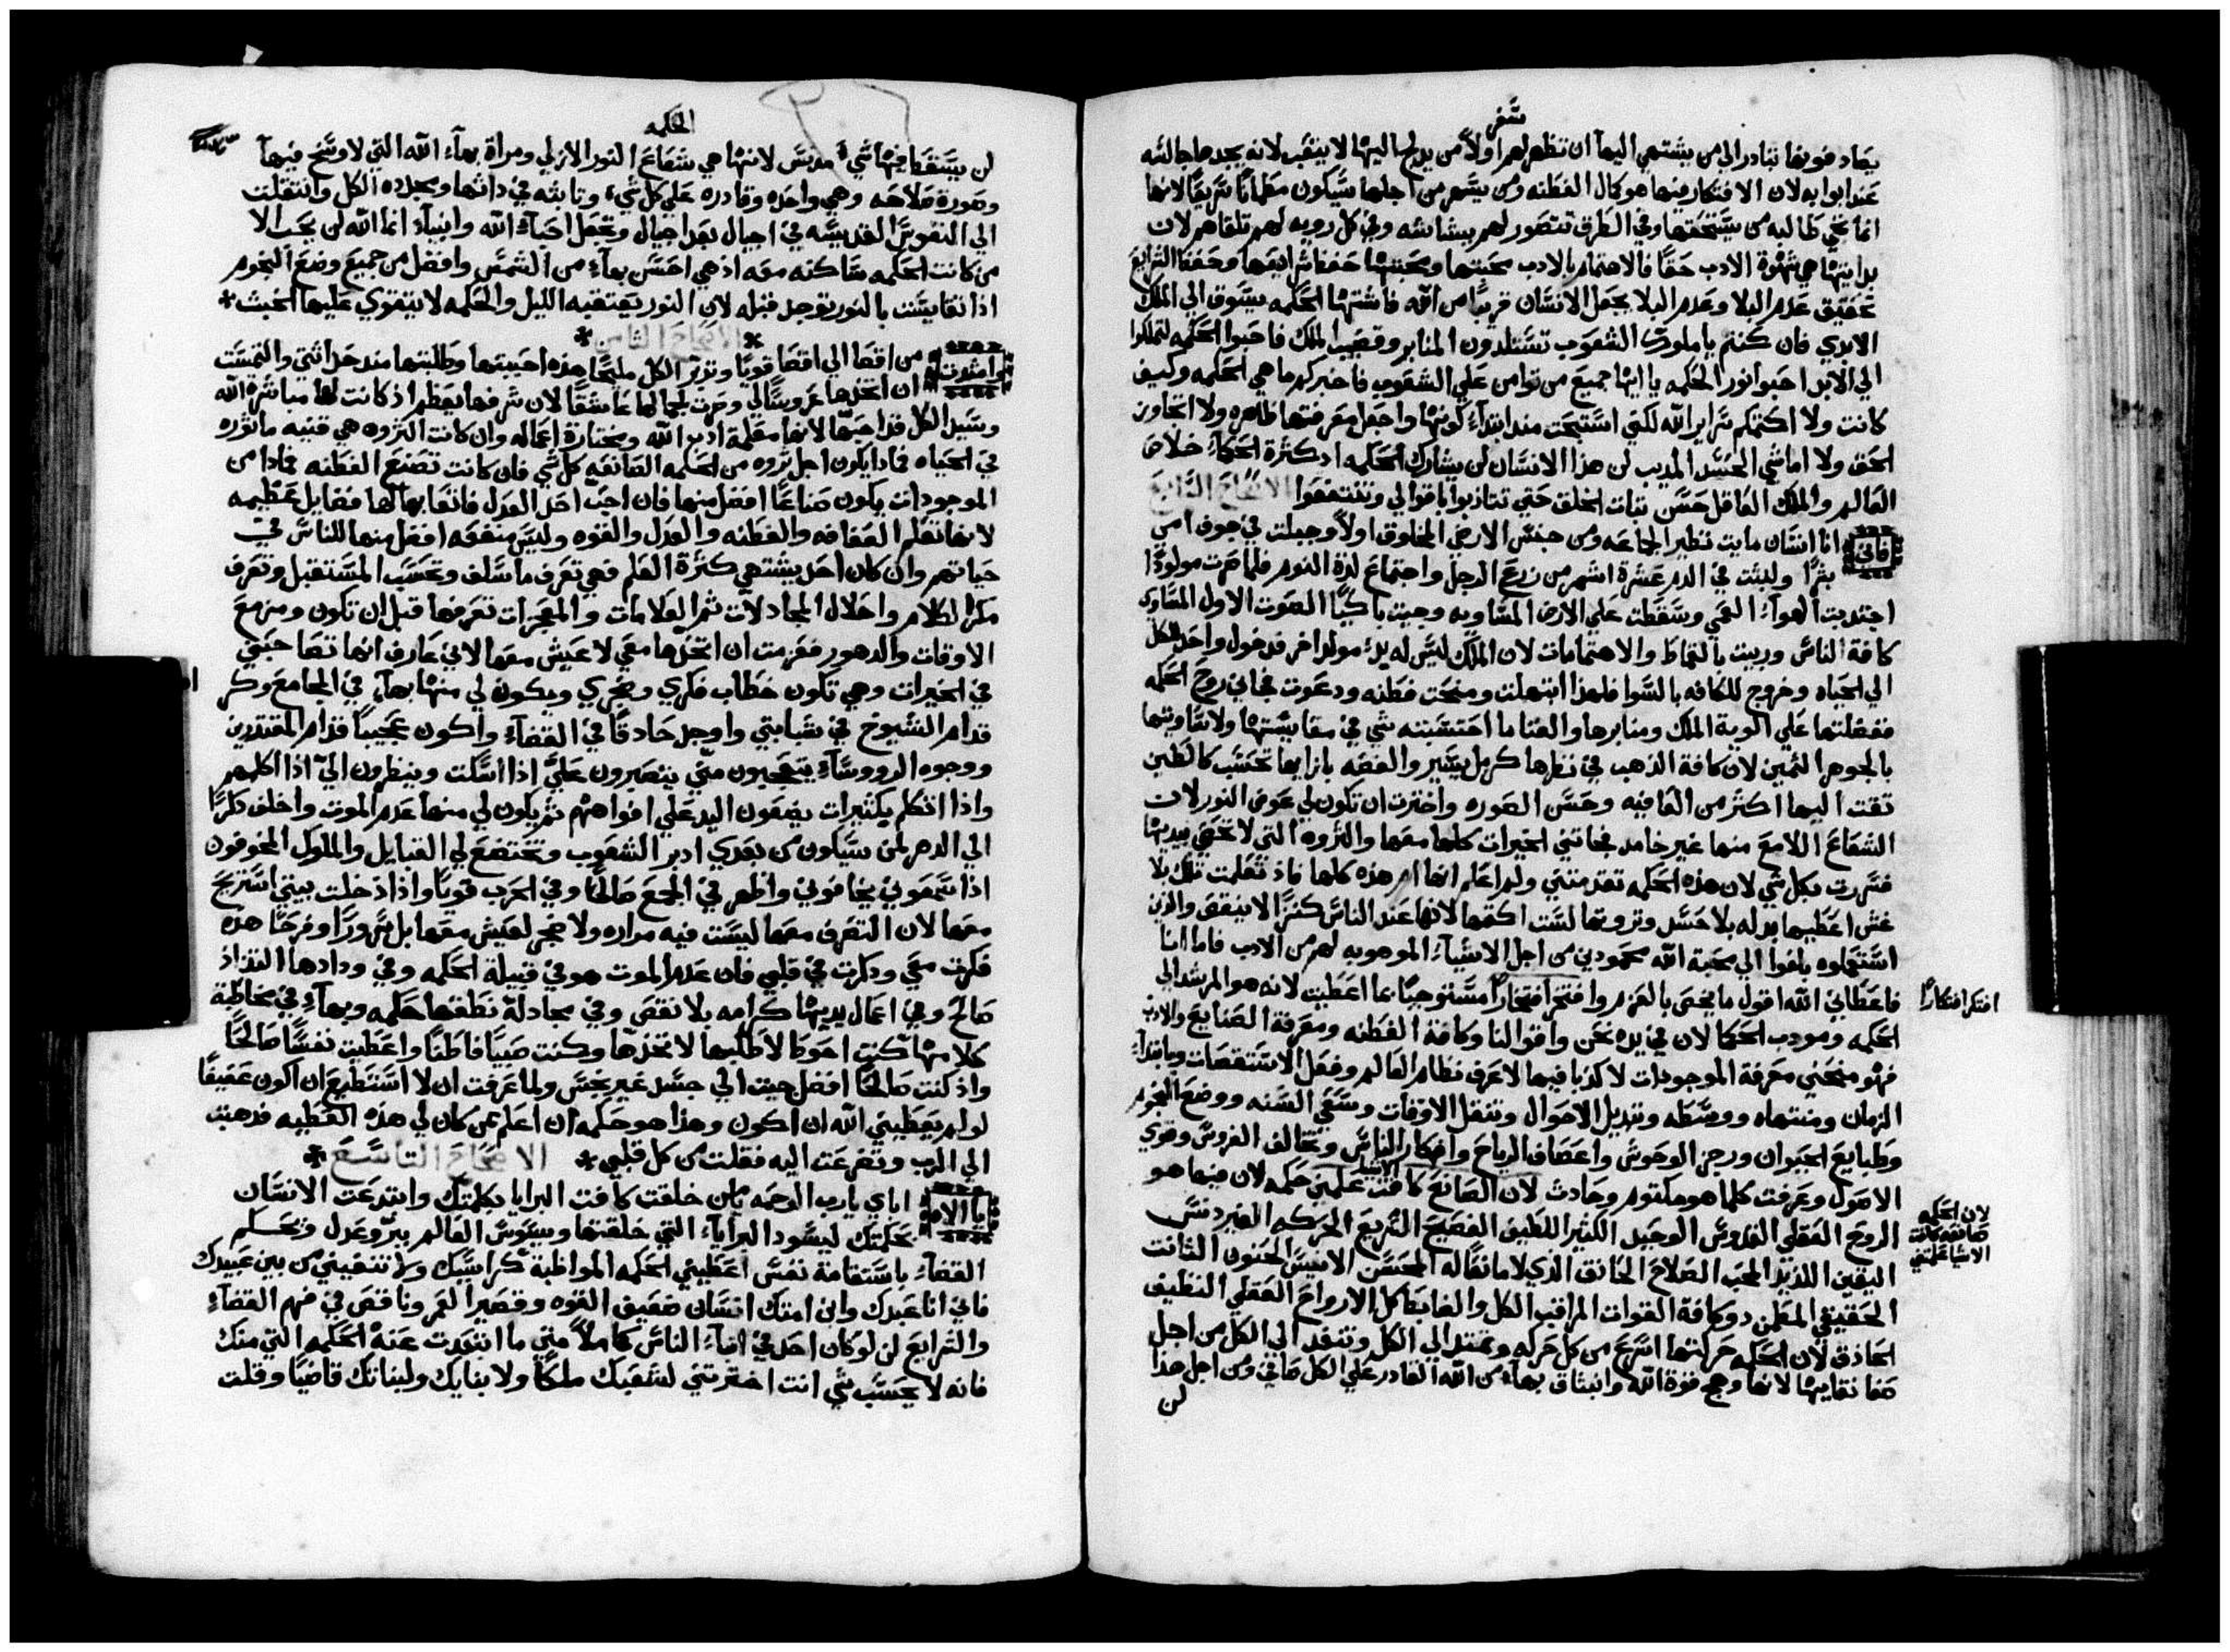 سفر
يصادفونها تبادر الي من يشتهي اليها ان تظهر لهم اولاً من يدلج اليها لا يتعب لانه يجدها جالسه
عند ابوابه لان الافتكار منها هو كمال الفطنه ومن يسهر من اجلها سيكون مطماناً سريعاً لانها
انما تجي طالبه من يستحقها وفي الطرق تتصور لهم ببشاشه وفي كل رويه لهم تلقاهم لان
بدايتها هي شهوة الادب حقاً فالاهتمام بالادب محبتها ومحبتها حفظ شرايعها وحفظ الشرايع
تحقيق عدم البلا وعدم البلا يجعل الانسان قريباً من الله فاشتها الحكمه يسوق الي الملك
الابدي فان كنتم يا ملوك الشعوب تستلدون المنابر وقضيب الملك فاحبوا الحكمه لتملكوا
الي الابد احبوا نور الحكمه يا ايها جميع من توامن علي الشعوب فاخبركم ما هي الحكمه وكيف
كانت ولا اكتمكم سراير الله لكني استبحت منذ ابتداء كونها واجعل معرفتها ظاهره ولا اتجاوز
الحق ولا اماشي الحسد المديب لن هذا الانسان لن يشارك الحكمه اد كثرة الحكماء خلاص
العالم والملك العاقل حسن تبات الخلق حتي تتادبوا باقوالي وتنتفعوا الاصحاح السابع
فاني انا انسان مايت نظير الجماعه ومن جنس الارضي المخلوق اولاً وجبلت في جوف امي
بشراً ولبثت في الدم عشرة اشهر من زرع الرجل واجتماع لذة النوم فلما صرت مولوداً
اجتدبت الهواء العمي وسقطت علي الارض المساويه وجيت باكياً الصوت الاول المساوي
كافة الناس وربيت بالقماط والاهتمامات لان الملك ليس له بدء مولد اخر فدخول واحد للكل
الي الحياه وخروج للكافه بالسوا فلهذا ابتهلت ومنحت فطنه ودعوت فجاني روح الحكمه
ففضلتها علي الوية الملك ومنابرها والغنا ما احتسبته شي في مقايستها ولا ساويتها
بالجوهر الثمين لان كافة الذهب في نظرها كرمل يسير والفضه بازايها تحسب كالطين
تقت اليها اكثر من العافيه وحسن الصوره واخترت ان تكون لي عوض النور لان
الشعاع اللامع منها غير خامد فجاتني الخيرات كلها معها والثروه التي لا تحصي بيديها
فسررت بكل شي لان هذه الحكمه تقدمتني ولم اعلم انها ام هذه كلها فاذ تعلمت تلك بلا
غش اعطيها بدله بلا حسد وثروتها لست اكتمها لانها عند الناس كنزاً لا ينقص والذين
استعملوه بلغوا الي محبة الله محمودين من اجل الاشياء الموهوبه لهم من الادب فاما انا
فاعطاني الله اقول ما يختص بالعزم وافتخر افتخاراً مستوجباً بما اعطيت لانه هو المرشد الي
افتكر افتكاراً
الحكمه ومودب الحكما لان في يده نحن واقوالنا وكافة الفطنه ومعرفة الصنايع والادب
فهو منحني معرفة الموجودات لا كذبا فيها لاعرف نظام العالم وفعل الاستقصات وبابتداء
الزمان ومنتهاه ووسطه وتبديل الاحوال وتنقل الاوقات وسني السنه ووضع النجوم
وطبايع الحيوان ورجز الوحوش واعصاف الرياح وافكار الناس وتخالف الغروس وقوي
الاصول وعرفت كلما هو مكتوم وحادث لان الصانع كافة الاشيا علمني حكمه لان فيها هو
لان الحكمه صانعه كافة الاشيا علمتني
الروح العقلي القدوس الوحيد الكثير اللطيف الفصيح السريع الحركه الغير دنس
اليقين اللذيذ المحب الصلاح الحاذق الذي لا مانعاً له المحسن الانيس الحنون الثابت
الحقيقي المطمن دو كافة القوات المراقب الكل والضابط كل الارواح العقلي النظيف
الحاذق لان الحكمه حركتها اسرع من كل حركه وتمتد الي الكل وتنفد الي الكل من اجل
صفا نقاييها لانها وهج قوة الله وانبثاق بهاء من الله القادر علي الكل صافي ومن اجل هذا
لن
الحكمه
لن يسقط فيها شيء مدنس لانها هي شعاع النور الازلي ومراة بهاء الله التي لا وسخ فيها
وصورة صلاحه وهي واحده وقادره علي كل شيء وثابته في داتها ومجدده الكل وانتقلت
الي النفوس القديسه في اجيال بعد اجيال وتجعل احباء الله وانبياء انما الله لن يحب الا
من كانت الحكمه ساكنه معه اذ هي احسن بهاء من الشمس وافضل من جميع وضع النجوم
اذا تقايست بالنور توجد قبله لان النور يعتقبه الليل والحكمه لا يتقوي عليها الخبث *
* الاصحاح الثامن *
وامتدت من اقصا الي اقصا قوياً وتدبر الكل مليحاً هذه احببتها وطلبتها منذ حداثتي والتمست
ان اتخذها عروساً لي وصرت لجمالها عاشقاً لان شرفها يعظم اذ كانت لها مباشرة الله
وسيد الكل قد احبها لانها معلمة ادب الله ومختارة اعماله وان كانت الثروه هي قنيه ماثوره
في الحياه فمادا يكون اجل ثروه من الحكمه الصانعه كل شي فان كانت تصنع الفطنه فمادا من
الموجودات يكون صناعاً افضل منها فان احب احد العدل فاتعابها لها فضايل عظيمه
لانها تعلم العفافه والفطنه والعدل والقوه وليس منفعه افضل منها للناس في
حياتهم وان كان احد يشتهي كثرة العلم فهي تعرف ما سلف وتحسب المستقبل وتعرف
مكر الكلام واحلال المجادلات ثم العلامات والمعجزات تعرفها قبل ان تكون ومزمع
الاوقات والدهور فعزمت ان اتخذها معي لاعيش معها لاني عارف انها تصاحبني
في الخيرات وهي تكون خطاب فكري وضجري ويكون لي منها بهاء في المجامع وكر
قدام الشيوخ في شبابتي واوجد حادقاً في القضاء واكون عجيباً قدام المقتدرين
ووجوه الرووساء يتعجبون مني يتصبرون علي اذا اسكت وينظرون الي اذا اكلهم
واذا اتكلم بكثيرات يضعون اليد علي افواههم ثم يكون لي منها عدم الموت واخلف ذكراً
الي الدهر لمن سيكون من بعدي ادبر الشعوب وتخضع لي القبايل والملوك المخوفون
اذا سمعوني يخافوني واظهر في الجمع صالحاً وفي الحرب قوياً واذا دخلت بيتي استريح
معها لان التصرف معها ليست فيه مراره ولا ضجر لعيش معها بل سروراً وفرحاً هذه
فكرت معي وذكرت في قلبي فان عدم الموت هو في قبيلة الحكمه وفي ودادها التذاذ
صالح وفي اعمال يديها كرامه بلا نقص وفي مجادلة نطقها حكمه وبهاء في مخاطبة
كلامها كنت احوط لاطلبها لاتخذها وكنت صبياً فاطناً واعطيت نفساً صالحاً
واذ كنت صالحاً افضل جيت الي جسد غير نجس ولما عرفت ان لا استطيع ان اكون عفيفاً
لو لم يعطيني الله ان اكون وهذا هو حكمه ان اعلم من كان لي هذه العطيه فدهبت
الي الرب وتضرعت اليه فقلت من كل قلبي * الاصحاح التاسع *
يا الاه اباي يا رب الرحمه يامن خلقت كافت البرايا بكلمتك وابتدعت الانسان
بحكمتك ليسود البراياء التي خلقتها ويسوس العالم ببر وعدل ويحكم
القضاء باستقامة نفس اعطيني الحكمه المواظبة كراسيك ولا تنفيني من بين عبيدك
فاني انا عبدك وابن امتك انسان ضعيف القوه وقصير العمر وناقص في فهم القضاء
والشرايع لن لو كان احد في ابناء الناس كاملاً متي ما ابتعدت عنه الحكمه التي منك
فانه لا يحسب شي انت اخترتني لشعبك ملكاً ولابنايك ولبناتك قاضياً وقلت